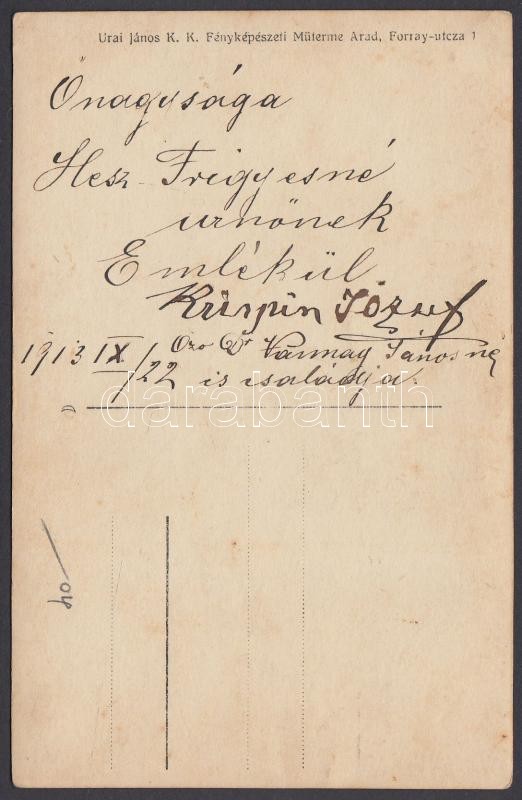 Urai János K. K. Fényképészeti Műterme Arad, Forray-utcza 1
Őnagysága
Hesz Frigyesné
urnőnek
Emlékül
Krispin József
1913 IX/22 Özv Dr Vannay Jánosné
is családja.
darabanth
40